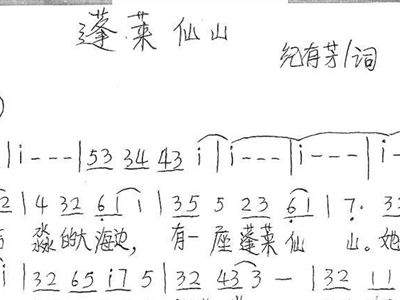 蓬莱仙山
纪有芳/词
| i - - - | 53 34 43 i | i - - - | i - - - | i
2 | 4 32 6 1 1 | 35 5 23 6 1 | 7·
淼的大海边, 有一座蓬莱仙山。她
i | 32 65 i7 5 | 32 43 3 - | 32 11